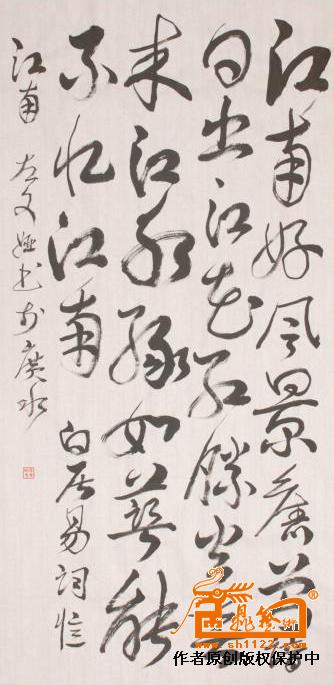 江南好风景舊曾谙
日出江花红勝火春
来江水绿如蓝能
不忆江南 白居易词忆
江南
作者原创版权保护中